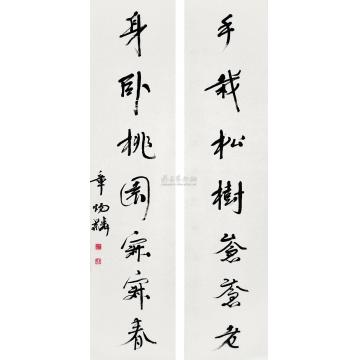 手栽松樹蒼蒼老
身臥桃園寂寂春
章炳麟